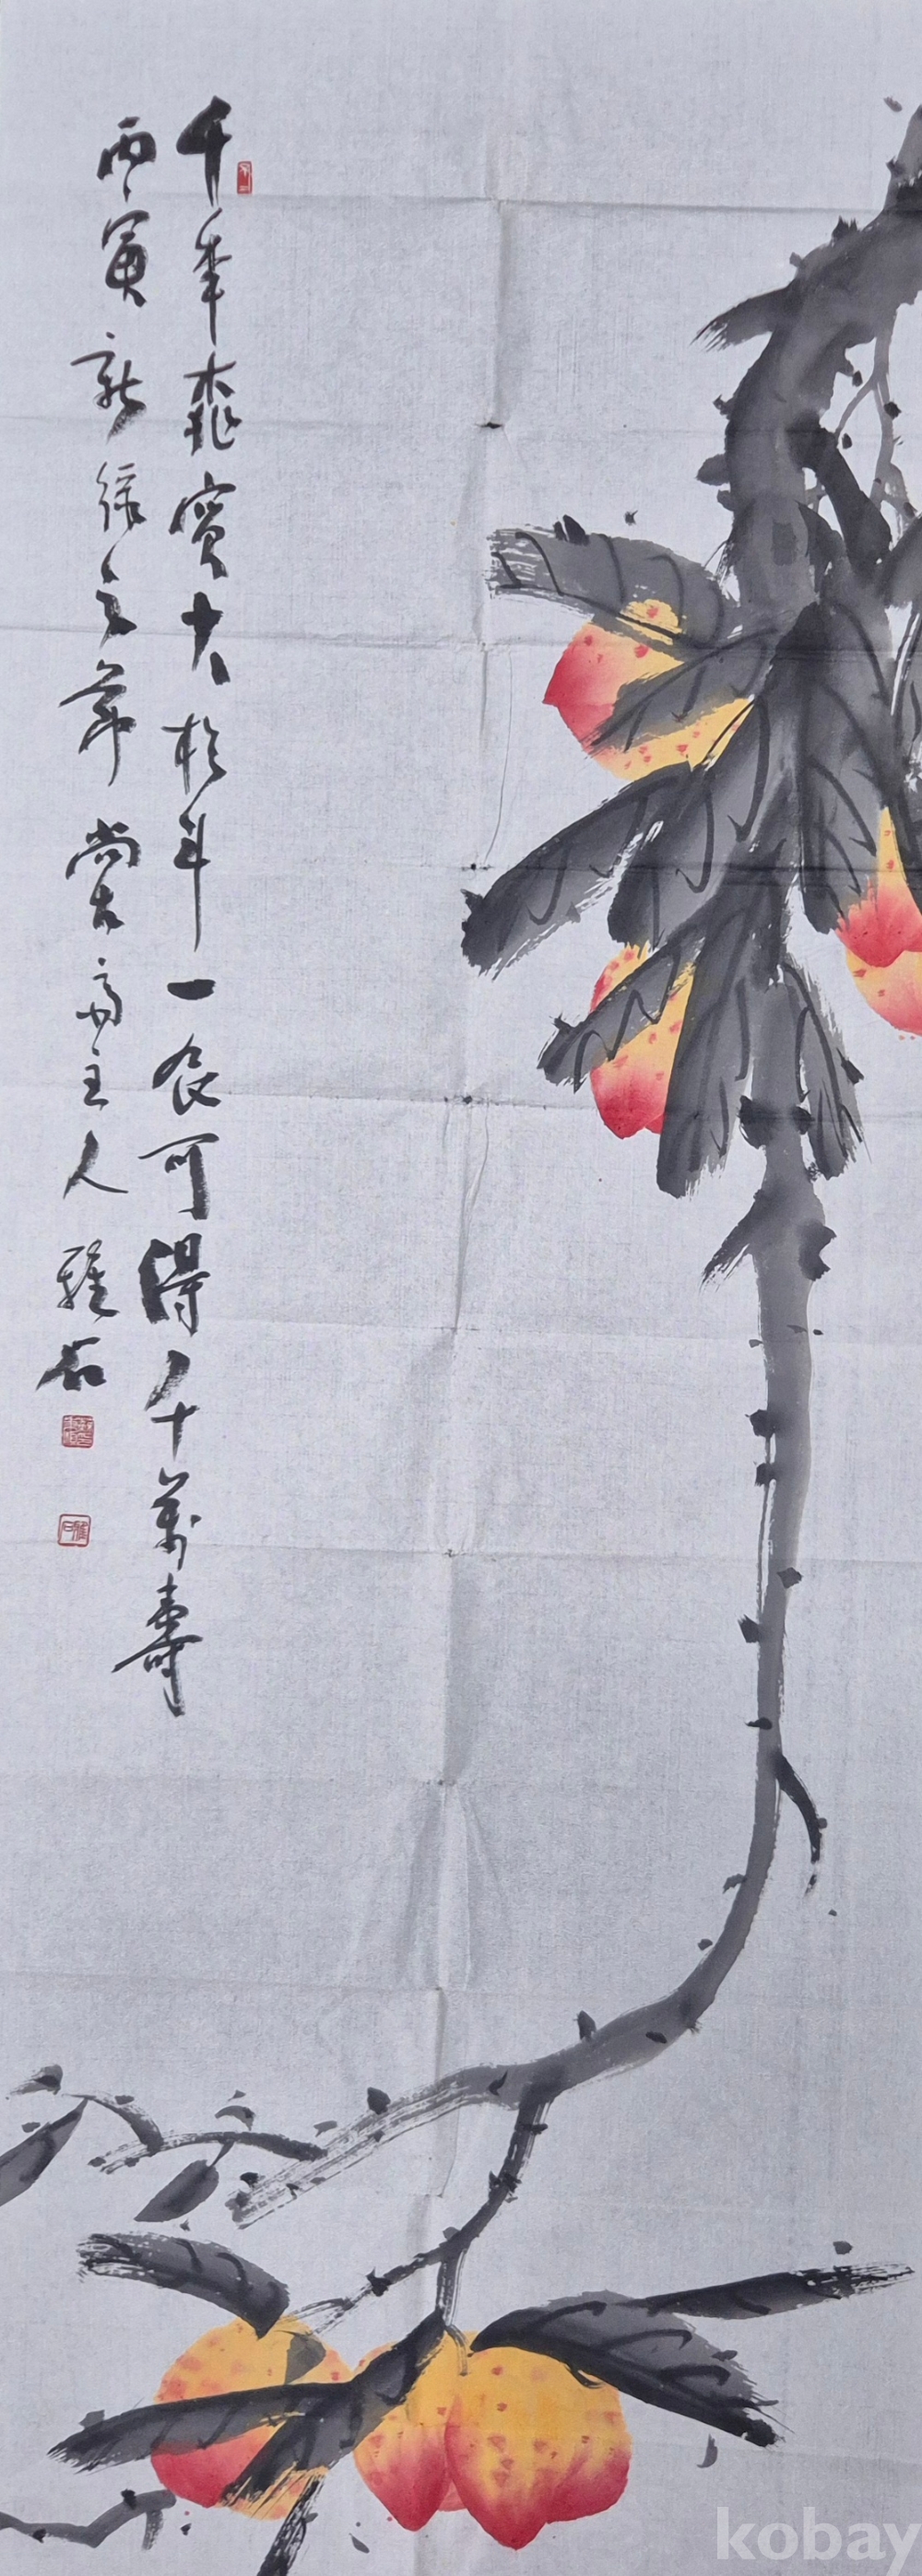 千年桃實大於斗一食可得千萬壽
丙寅新綠之節 尚古斎主人 石
kobay